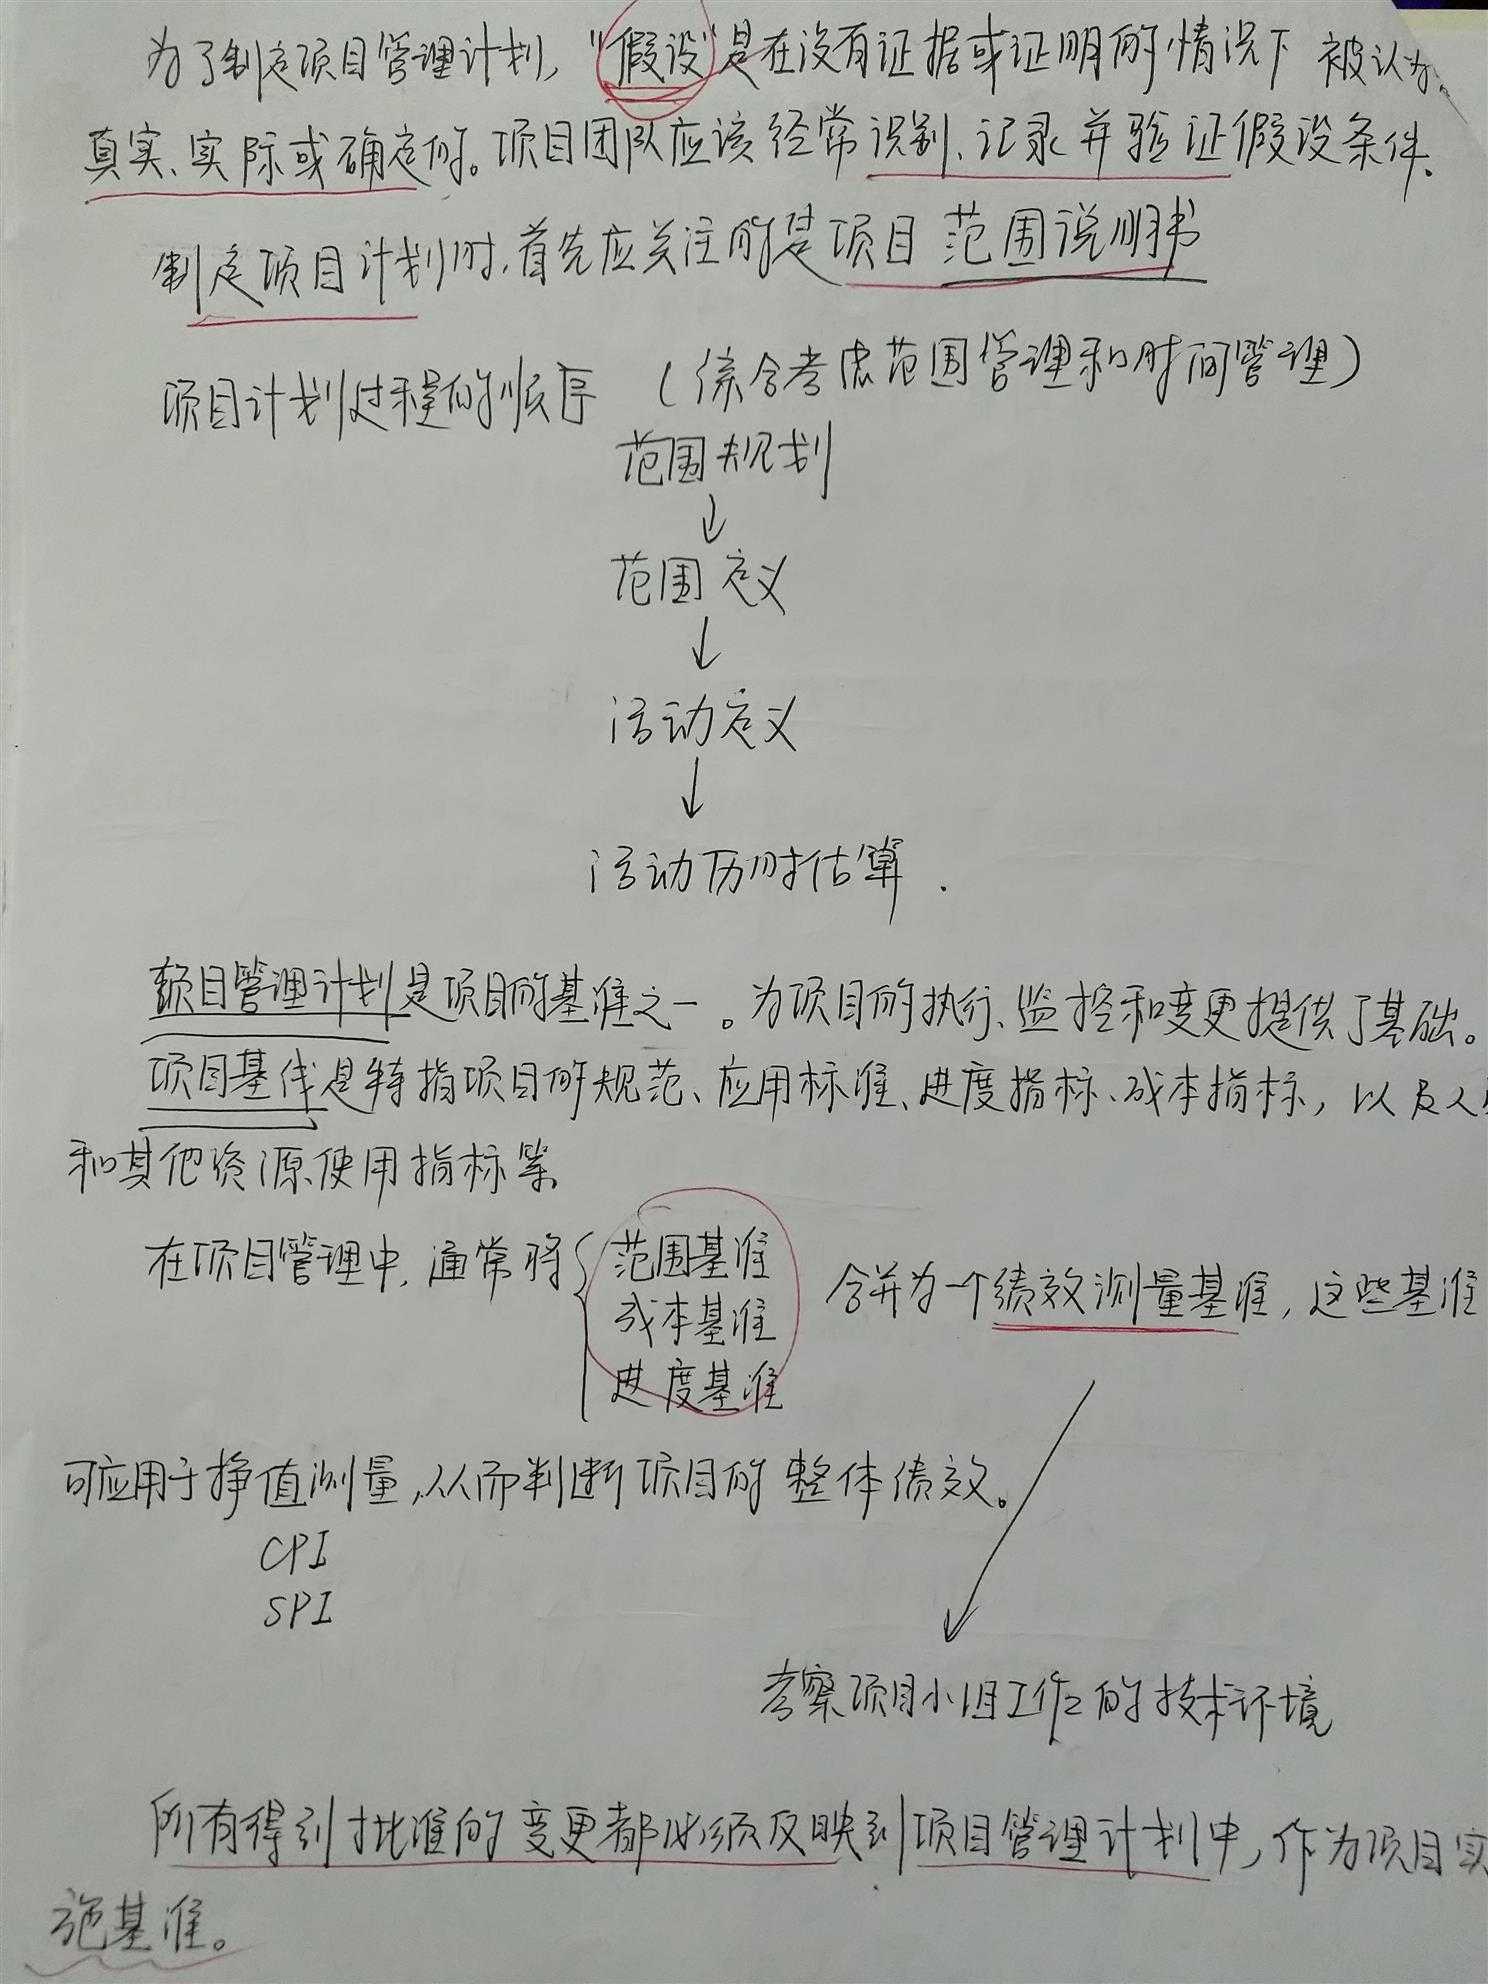 为了制定项目管理计划，“假设”是在没有证据或证明的情况下 被认为
真实、实际或确定的。项目团队应该经常识别、记录并验证假设条件.
制定项目计划时，首先应关注的是项目 范围说明书
项目计划过程的顺序 （综合考虑范围管理和时间管理）
范围规划
↓
范围定义
↓
活动定义
↓
活动历时估算.
项目管理计划是项目的基准之一。为项目的执行、监控和变更提供了基础。
项目基线是特指项目的规范、应用标准、进度指标、成本指标，以及人
和其他资源使用指标等.
在项目管理中，通常将{
范围基准
成本基准 合并为一个绩效测量基准，这些基准
进度基准
可应用于挣值测量，从而判断项目的整体绩效。
CPI
SPI
考察项目小组工作的技术环境
所有得到批准的变更都必须反映到项目管理计划中，作为项目实
施基准。